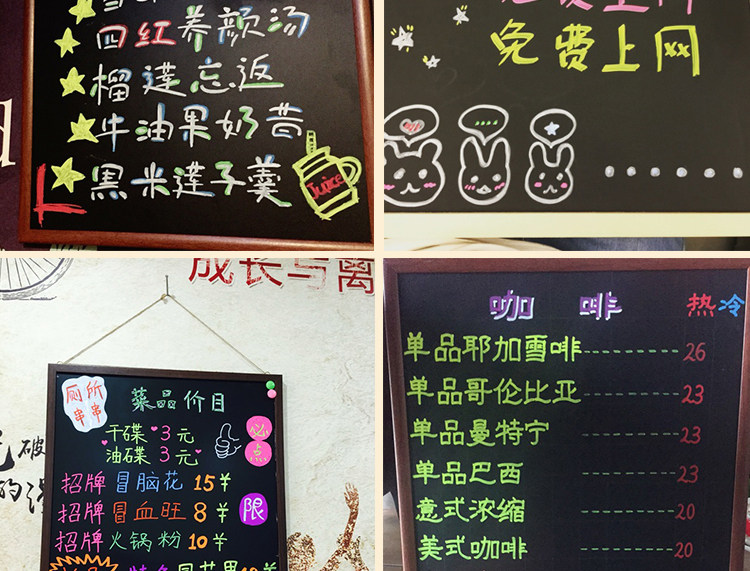 四红养颜汤
榴莲忘返
牛油果奶昔
黑米莲子羹
Juice
免费上网
成长与离
厕所串串
菜品价目
干碟 3元
油碟 3元
必点
招牌 冒脑花 15¥
招牌 冒血旺 8¥
限
招牌 火锅粉 10¥
破
的
咖啡 热 冷
单品耶加雪啡 26
单品哥伦比亚 23
单品曼特宁 23
单品巴西 23
意式浓缩 20
美式咖啡 20